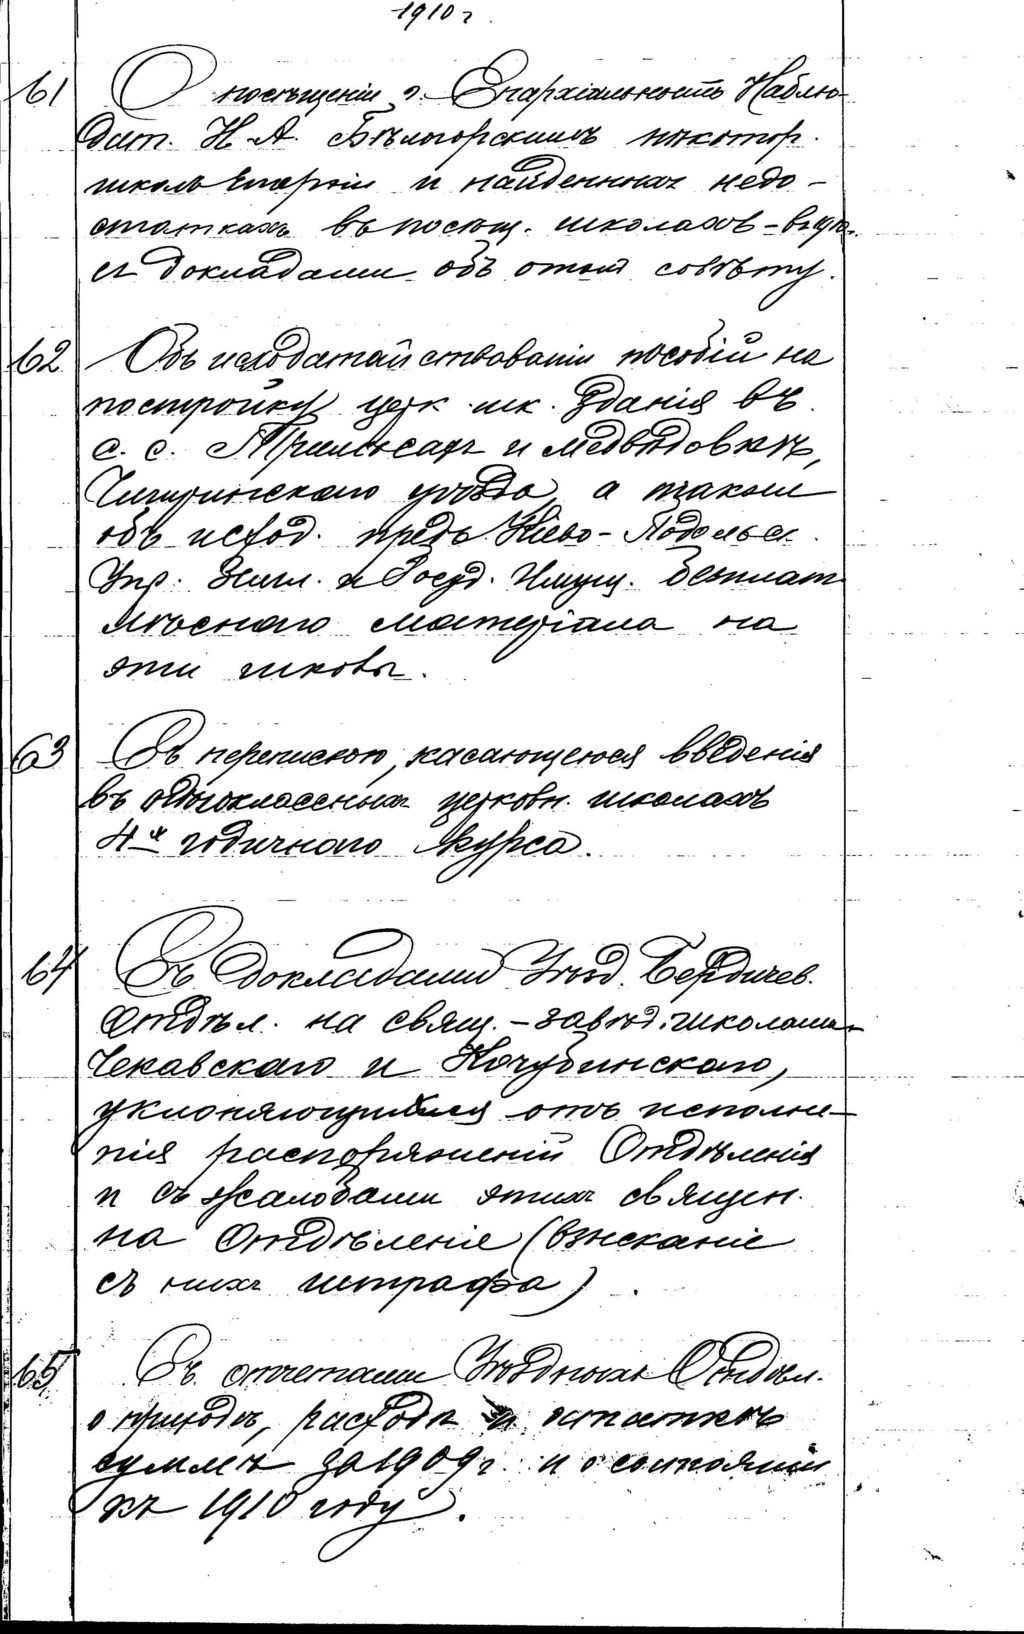 1910 г.
61 О посѣщеніи г. Епархіальнымъ Наблю-
дат. Н. А. Бѣлогорскимъ нѣкотор.
школъ Епархіи и найденныхъ недо-
статкахъ въ посѣщ. школахъ –
съ докладами объ этомъ совѣту.
62 Объ исходатайствованіи пособій на
постройку церк. шк. зданія въ
с. с. и Медвѣдовкѣ,
Чигиринскаго уѣзда, а также
объ исход. предъ Кіево-Подольск.
Упр. Земл. и Госуд. Имущ. безплат
лѣснаго матеріала на
эти школы.
63 Съ перепискою, касающеюся введенія
въ одноклассныхъ церковн. школахъ
4х годичнаго курса.
64 Съ докладами Уѣзд. Бердичев.
Отдѣл. на свящ. – завѣд. школами
Чекавскаго и Кочубинскаго,
уклоняющихся отъ исполне-
нія распоряженій Отдѣленія
и съ жалобами этихъ священ.
на Отдѣленіе (взысканіе
съ нихъ штрафа).
65 Съ отчетами Уѣздныхъ Отдѣл.
о приходѣ, расходѣ и остаткѣ
суммъ за 1909 г. и о состояніи
къ 1910 году.